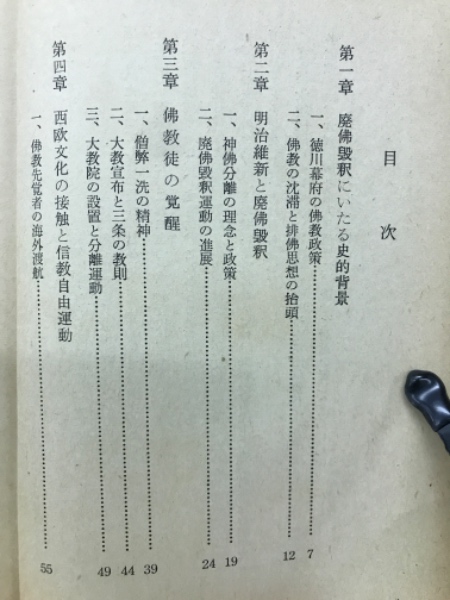 目次
第一章 廃佛毀釈にいたる史的背景
一、徳川幕府の佛教政策 7
二、佛教の沈滞と排佛思想の抬頭 12
第二章 明治維新と廃佛毀釈
一、神佛分離の理念と政策 19
二、廃佛毀釈運動の進展 24
第三章 佛教徒の覚醒
一、僧弊一洗の精神 39
二、大教宣布と三条の教則 44
三、大教院の設置と分離運動 49
第四章 西欧文化の接触と信教自由運動
一、佛教先覚者の海外渡航 55